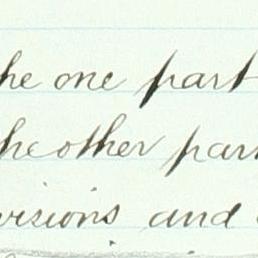 he one part
he other par
visions and